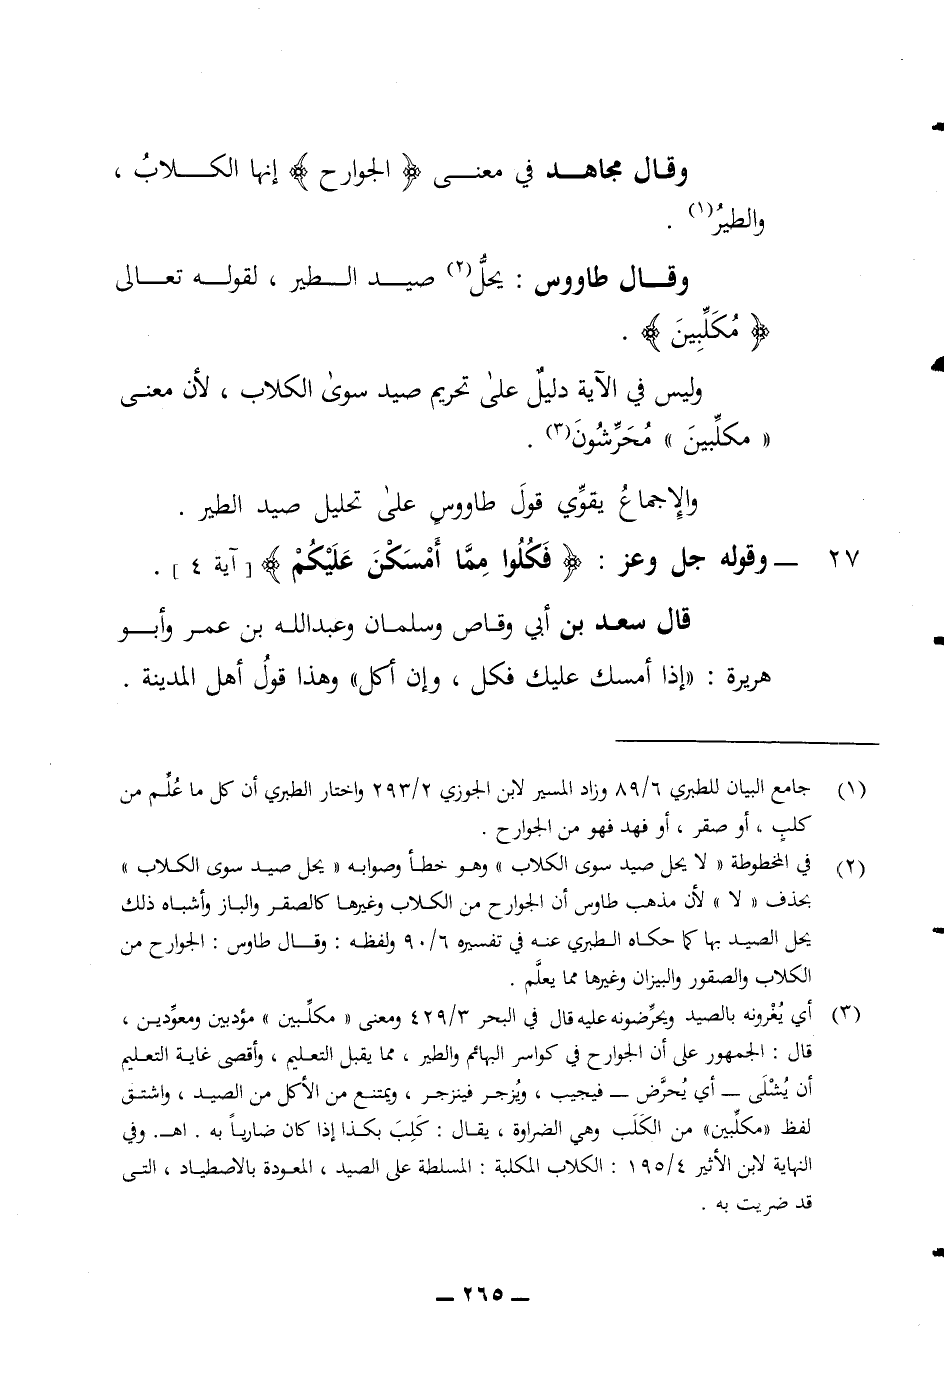 وقال مجاهد في معنى ﴿ الجوارح ﴾ إنها الكلابُ ،
والطيرُ(١) .
وقال طاووس : يحلُّ(٢) صيد الطير ، لقوله تعالى
﴿ مُكَلِّبِينَ ﴾ .
وليس في الآية دليلٌ علىٰ تحريم صيد سوىٰ الكلاب ، لأن معنى
« مكلِّبينَ » مُحَرِّشُونَ(٣) .
والإِجماعُ يقوِّي قولَ طاووسٍ علىٰ تحليل صيد الطير .
٢٧ ــ وقوله جل وعز : ﴿ فَكُلُوا مِمَّا أَمْسَكْنَ عَلَيْكُمْ ﴾ [ آية ٤ ] .
قال سعد بن أبي وقاص وسلمان وعبدالله بن عمر وأبو
هريرة : «إذا أمسك عليك فكل ، وإن أكل» وهذا قولُ أهل المدينة .
(١) جامع البيان للطبري ٨٩/٦ وزاد المسير لابن الجوزي ٢٩٣/٢ واختار الطبري أن كل ما عُلِّم من
كلبٍ ، أو صقر ، أو فهد فهو من الجوارح .
(٢) في المخطوطة « لا يحل صيد سوى الكلاب » وهو خطأ وصوابه « يحل صيد سوى الكلاب »
بحذف « لا » لأن مذهب طاوس أن الجوارح من الكلاب وغيرها كالصقر والباز وأشباه ذلك
يحل الصيد بها كما حكاه الطبري عنه في تفسيره ٩٠/٦ ولفظه : وقال طاوس : الجوارح من
الكلاب والصقور والبيزان وغيرها مما يعلَّم .
(٣) أي يُغْرونه بالصيد ويحرِّضونه عليه قال في البحر ٤٢٩/٣ ومعنى « مكلِّبين » مؤدبين ومعوِّدين ،
قال : الجمهور على أن الجوارح في كواسر البهائم والطير ، مما يقبل التعليم ، وأقصى غاية التعليم
أن يُشْلَى ــ أي يُحرَّض ــ فيجيب ، ويُزجر فينزجر ، ويمتنع من الأكل من الصيد ، واشتق
لفظ «مكلِّبين» من الكَلَب وهي الضراوة ، يقال : كَلِبَ بكذا إذا كان ضارياً به . اهـ. وفي
النهاية لابن الأثير ١٩٥/٤ : الكلاب المكلبة : المسلطة على الصيد ، المعودة بالاصطياد ، التي
قد ضريت به .
ــ ٢٦٥ ــ